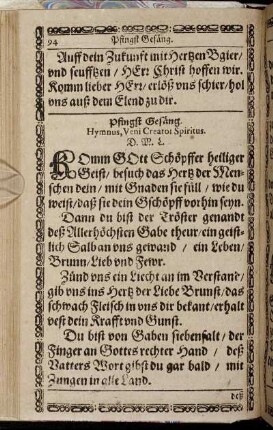 94
Pfingst Gesäng.
Auff dein Zukunft mit Hertzen Bgier/
vnd seufftzen / HErꝛ Christ hoffen wir.
Komm lieber HErꝛ/ erlöß vns schier/hol
vns auß dem Elend zu dir.
Pfingst Gesäng.
Hymnus, Veni Creator Spiritus.
D. M. L.
KOmm GOtt Schöpffer heiliger
Geist/ besuch das Hertz der Men-
schen dein / mit Gnaden sie füll / wie du
weist/daß sie dein Gschöpff vorhin seyn.
Dann du bist der Tröster genandt
deß Allerhöchsten Gabe theur/ein geist-
lich Salb an vns gewand / ein Leben/
Brunn/Lieb vnd Fewr.
Zünd vns ein Liecht an im Verstand/
gib vns ins Hertz der Liebe Brunst/das
schwach Fleisch in vns dir bekant/erhalt
vest dein Krafft vnd Gunst.
Du bist von Gaben siebenfalt / der
Finger an Gottes rechter Hand / deß
Vatters Wort gibst du gar bald / mit
Zungen in alle Land.
deß